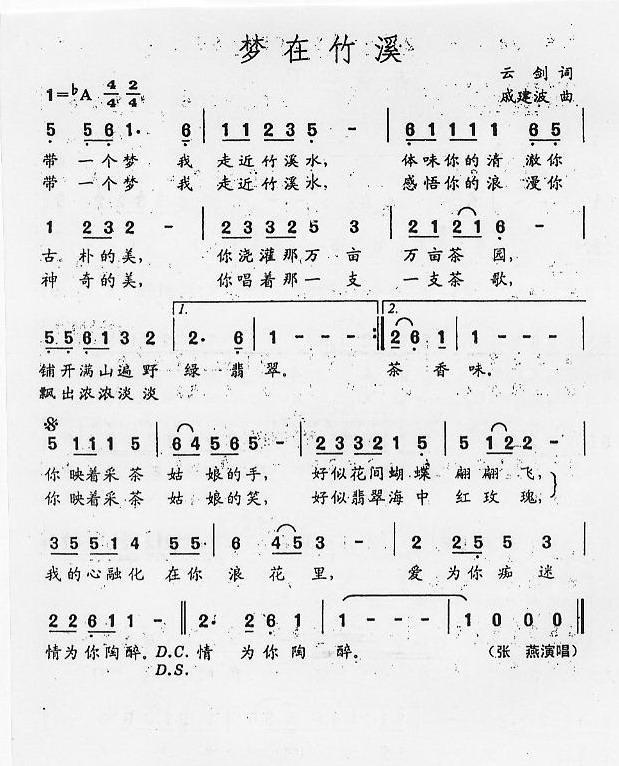 梦在竹溪
云 剑 词
1=♭A 4/4 2/4
戚建波 曲
5 5 6 1· 6 | 1 1 2 3 5 - | 6 1 1 1 1 6 5 |
带 一个梦 我 走近竹溪水, 体味你的清 澈你
带 一个梦 我 走近竹溪水, 感悟你的浪 漫你
1 2 3 2 - | 2 3 3 2 5 3 | 2 1 2 1 6 - |
古 朴的美, 你浇灌那万 亩 万亩茶 园,
神 奇的美, 你唱着那一 支 一支茶 歌,
1. 2.
5 5 6 1 3 2 | 2· 6 | 1 - - - :| 2 6 1 - - |
铺开满山遍 野 绿 翡 翠。 茶 香 味。
飘出浓浓淡 淡
5 1 1 1 5 | 6 4 5 6 5 - | 2 3 3 2 1 5 | 5 1 2 2 - |
你 映着采 茶 姑 娘的手, 好似花间蝴 蝶 翩 翩 飞,
你 映着采 茶 姑 娘的笑, 好似翡翠海 中 红 玫 瑰,
3 5 5 1 4 | 5 5· | 6 4 5 3 - | 2 2 5 5 3 |
我的心融化 在你 浪 花 里, 爱 为你 痴 迷
2 2 6 1 1 - || 2· 2 6 1 | 1 - - - | 1 0 0 0 ||
情为你陶醉。D.C. 情 为你 陶 醉。 (张 燕演唱)
D.S.